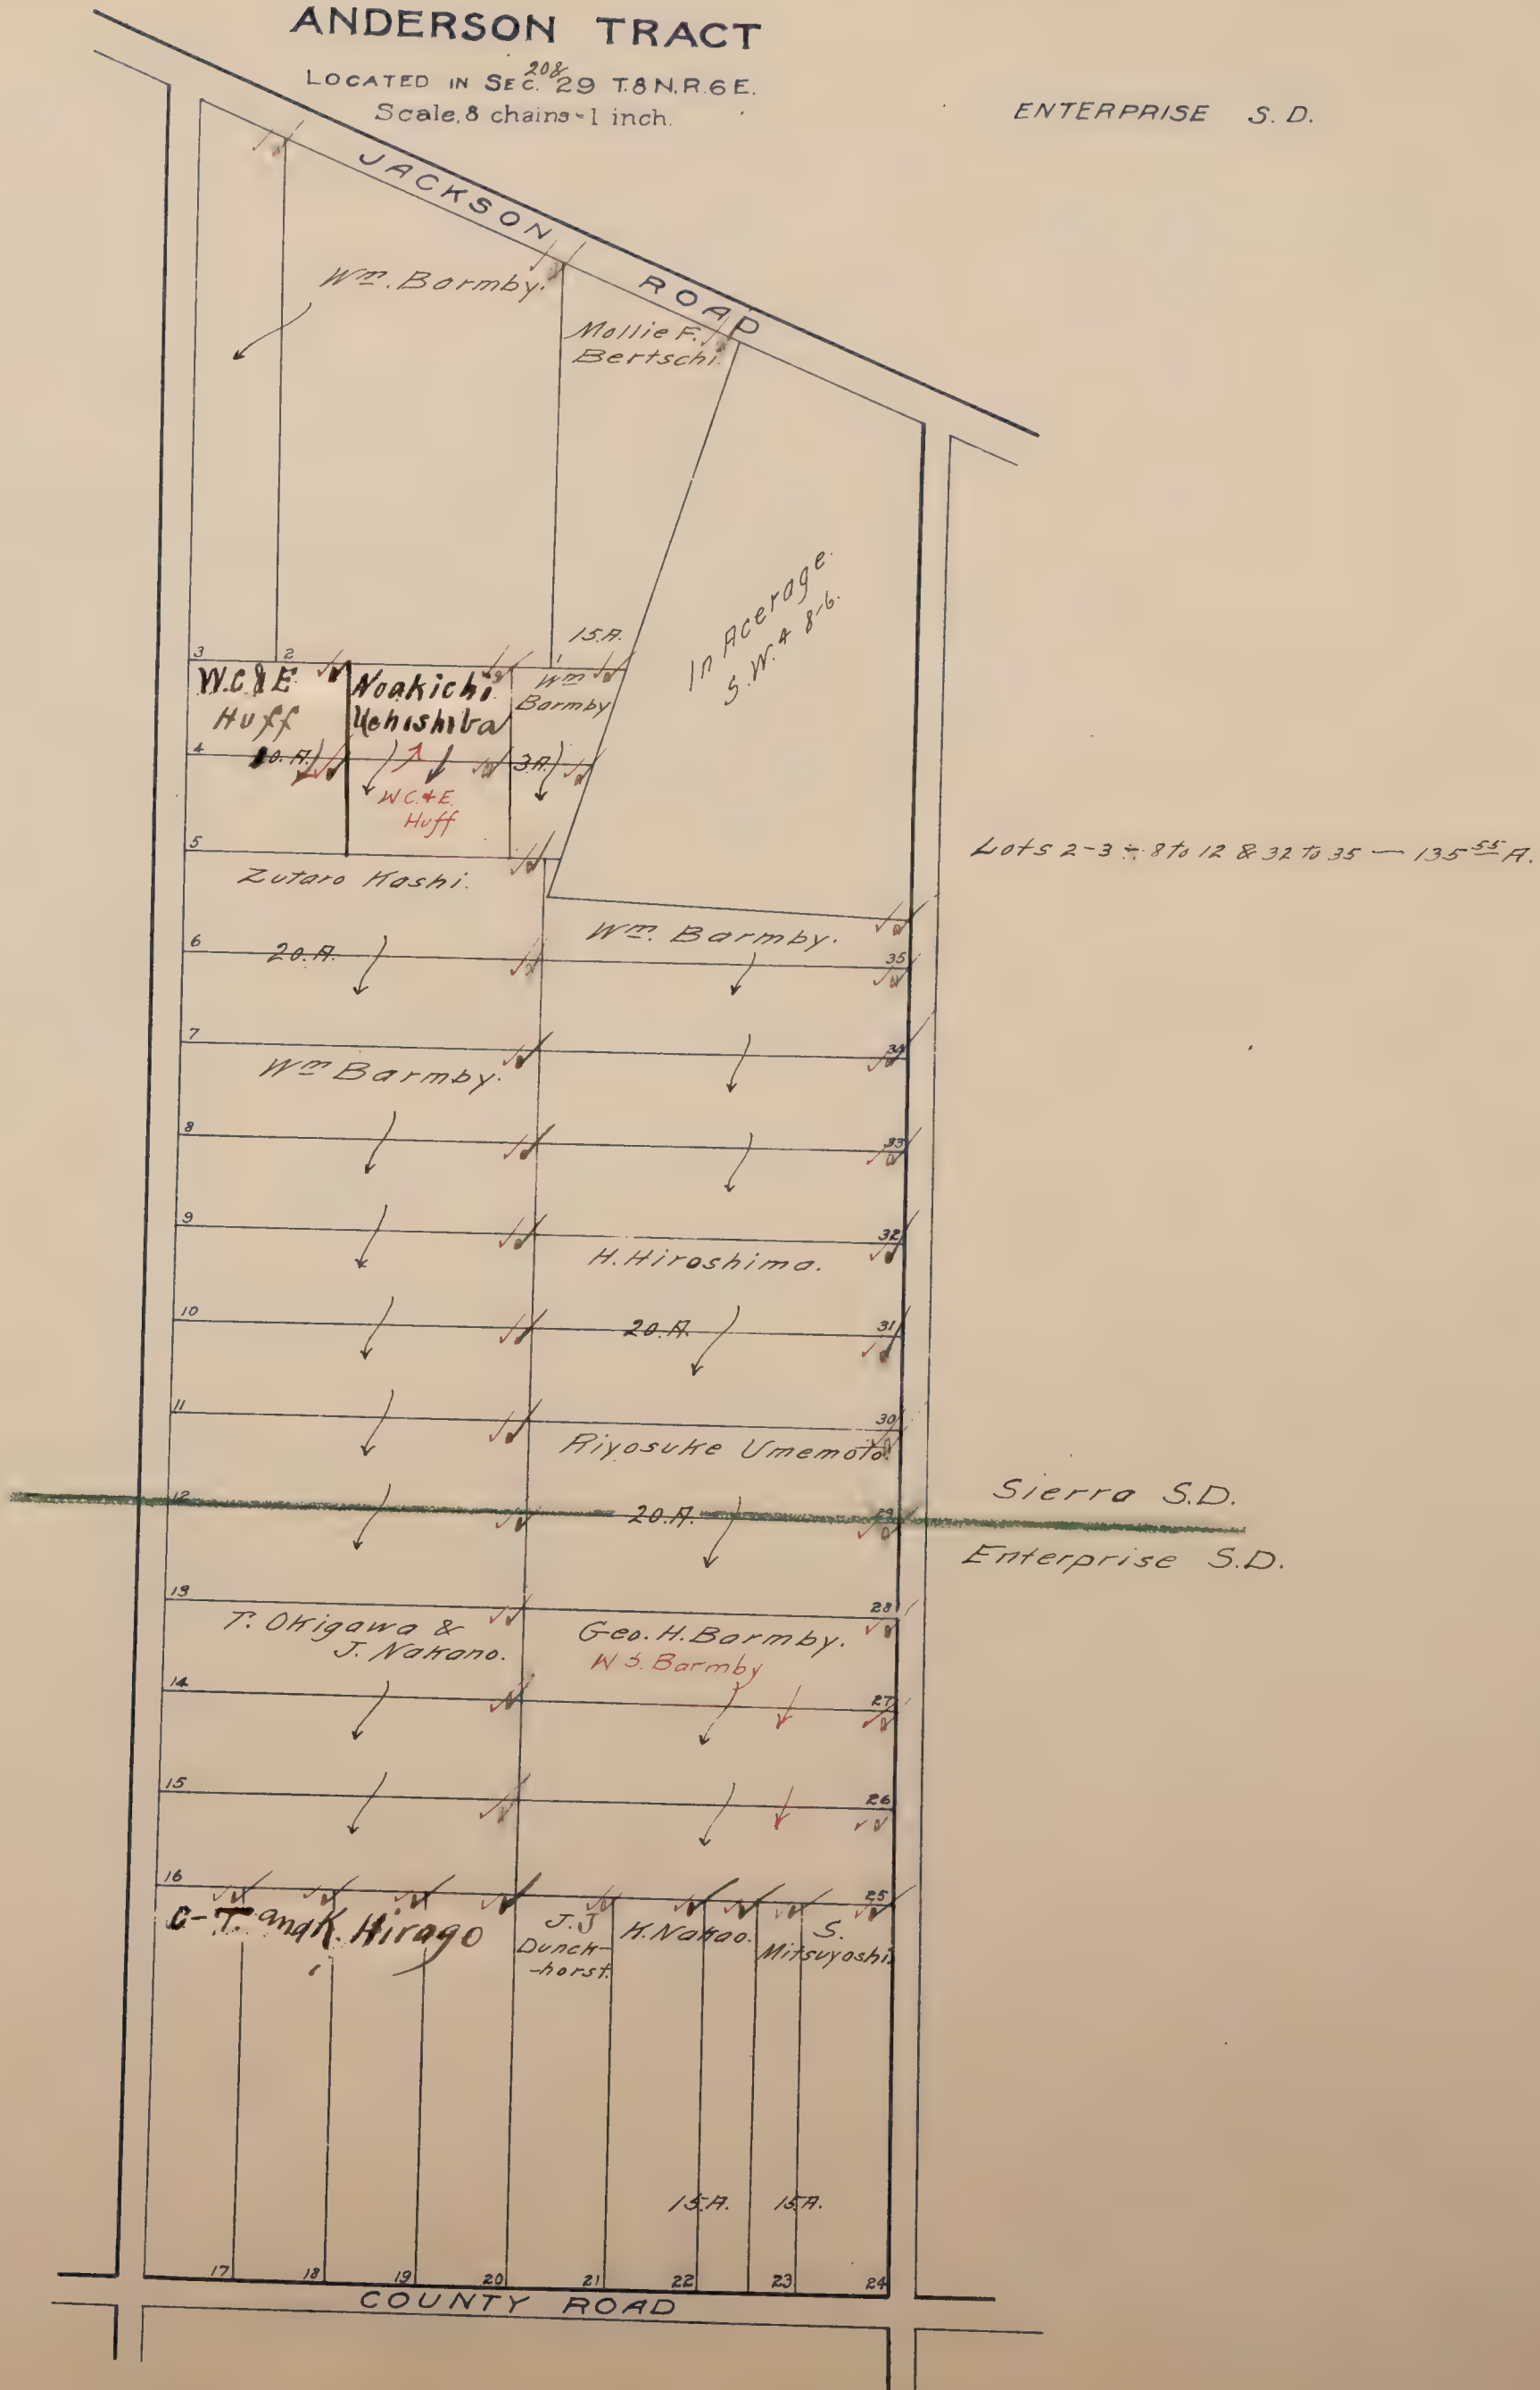 ANDERSON TRACT
20&
LOCATED IN SEC. 29 T.8 N.R.6 E.
Scale, 8 chains=1 inch.
ENTERPRISE S. D.
JACKSON ROAD
Wm. Barmby.
Mollie F.
Bertschi.
In Acerage.
S.W. 4 8-6.
15.A.
3
2
1
W.C & E
Huff
Noakichi
Uchishiba
Wm
Barmby
4
10. A.
3A.
W C. & E.
Huff
5
Zutaro Kashi.
Lots 2-3 - 8 to 12 & 32 to 35 — 135 55 A.
Wm. Barmby.
6
20.A.
35
7
34
Wm Barmby.
8
33
9
32
H. Hiroshima.
10
20.A.
31
11
30
Riyosuke Umemoto.
Sierra S.D.
12
20.A.
29
Enterprise S.D.
13
28
T. Okigawa &
J. Nakano.
Geo. H. Barmby.
W S. Barmby
14
27
15
26
16
25
C- T. and K. Hirago
J. J
Dunck-
-horst.
K. Nakao.
S.
Mitsuyoshi.
15.A.
15A.
17
18
19
20
21
22
23
24
COUNTY ROAD